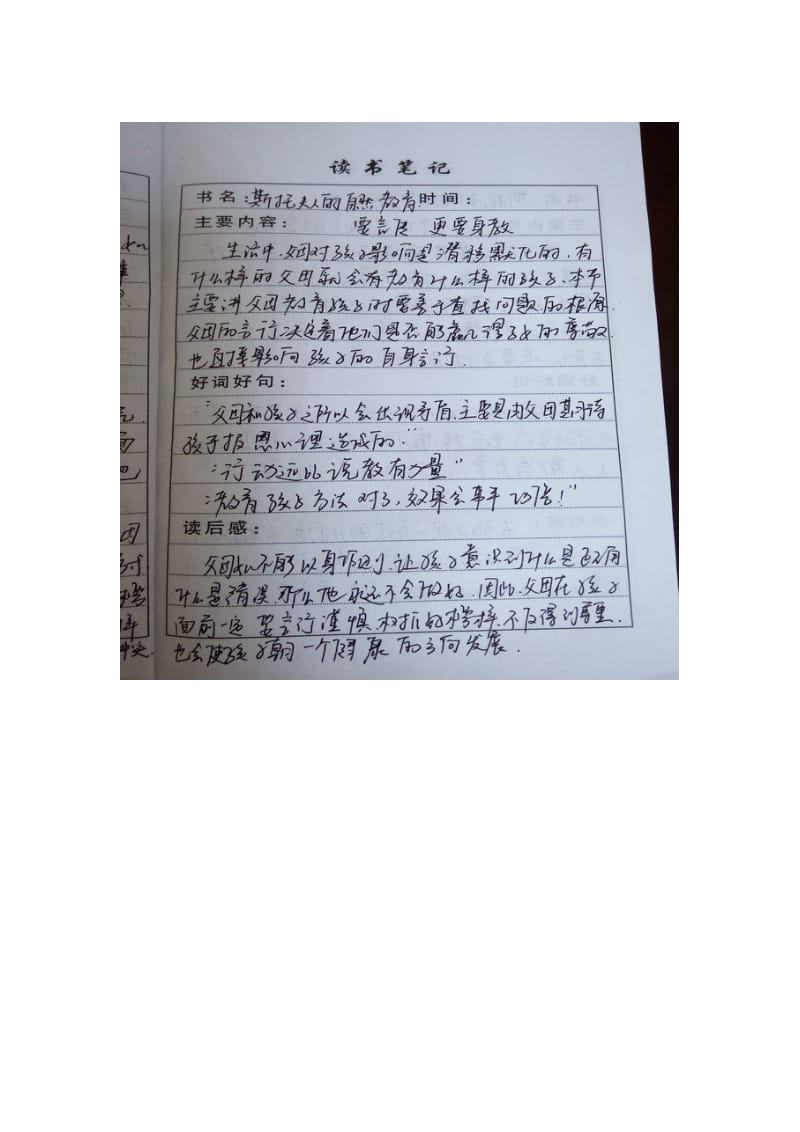 读书笔记
书名:斯托夫人的自然教育 时间:
主要内容: 要言传 更要身教
生活中,父母对孩子影响是潜移默化的,有
什么样的父母就会有教育什么样的孩子、本节
主要讲父母教育孩子时要善于查找问题的根源.
父母的言行决定着他们是否能赢得子女的尊敬
也直接影响孩子的自身言行.
好词好句:
"父母和孩子之所以会出现矛盾,主要是由父母期待
孩子报恩心理造成的."
"行动远比说教有力量"
"教育孩子方法对了,效果会事半功倍!"
读后感:
父母如不能以身作则,让孩子意识到什么是正确
什么是错误,那么他永远不会做好,因此,父母在孩子
面前一定要言行谨慎 树抓好榜样,不仅得到尊重.
也会使孩子朝一个健康的方向发展.